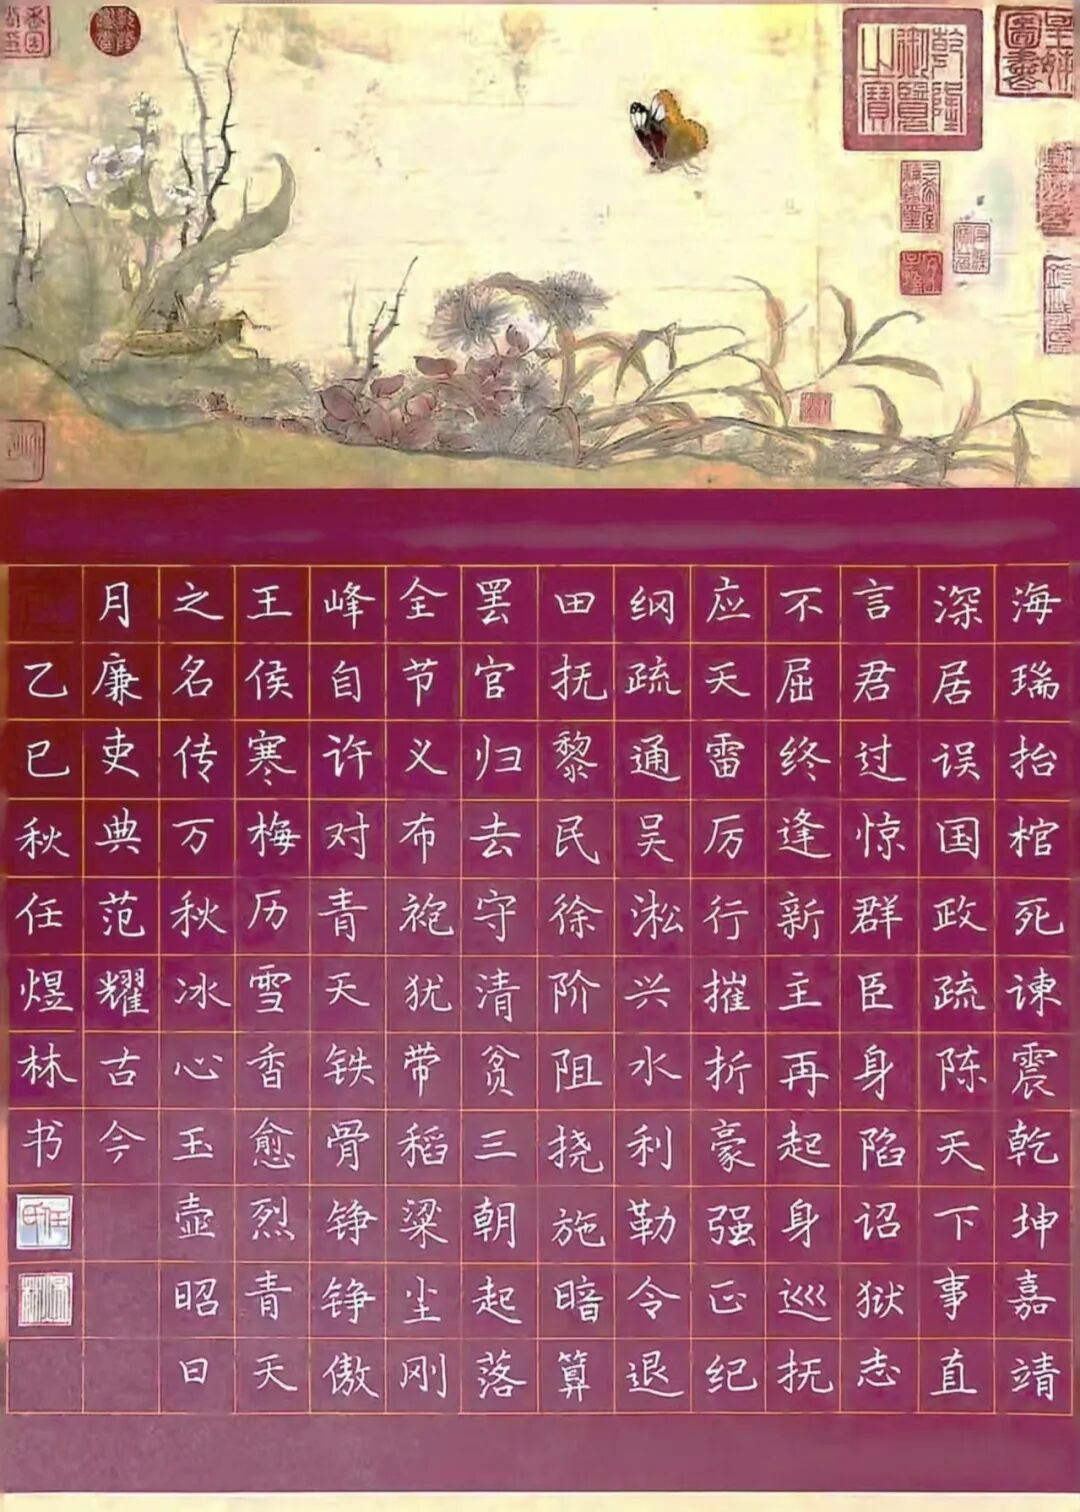 乾隆御覽之寶
三希堂精鑑璽
宜子孫
海瑞抬棺死谏震乾坤嘉靖
深居误国政疏陈天下事直
言君过惊群臣身陷诏狱志
不屈终逢新主再起身巡抚
应天雷厉行摧折豪强正纪
纲疏通吴淞兴水利勒令退
田抚黎民徐阶阻挠施暗算
罢官归去守清贫三朝起落
全节义布袍犹带稻粱尘刚
峰自许对青天铁骨铮铮傲
王侯寒梅历雪香愈烈青天
之名传万秋冰心玉壶昭日
月廉吏典范耀古今
乙巳秋任煜林书